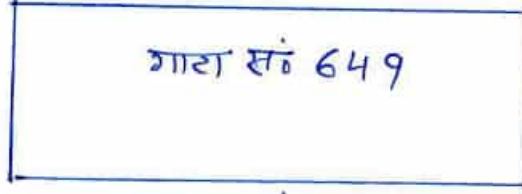 गाटा सं० 649